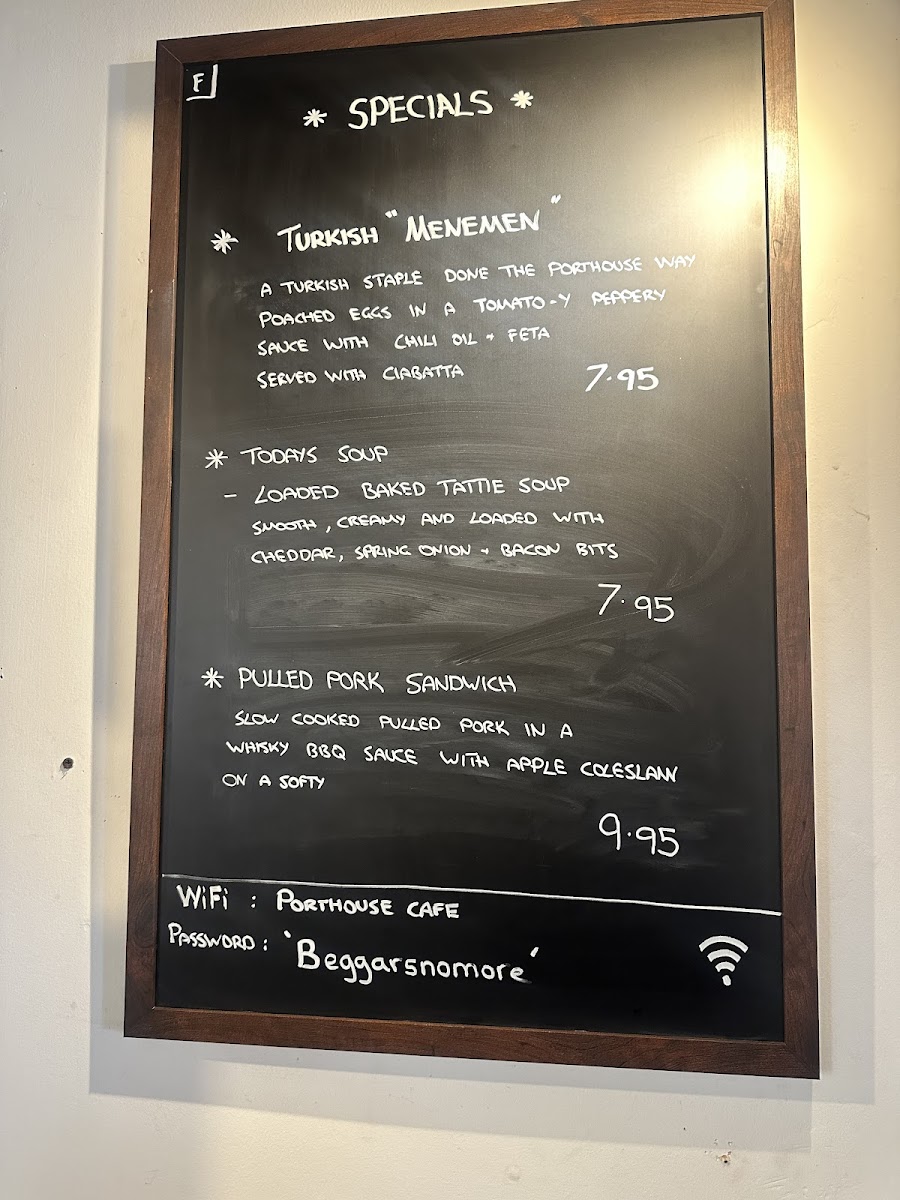 F
* SPECIALS *
* TURKISH "MENEMEN"
A TURKISH STAPLE DONE THE PORTHOUSE WAY
POACHED EGGS IN A TOMATO-Y PEPPERY
SAUCE WITH CHILI OIL + FETA
SERVED WITH CIABATTA 7.95
* TODAYS SOUP
- LOADED BAKED TATTIE SOUP
SMOOTH, CREAMY AND LOADED WITH
CHEDDAR, SPRING ONION + BACON BITS
7.95
* PULLED PORK SANDWICH
SLOW COOKED PULLED PORK IN A
WHISKY BBQ SAUCE WITH APPLE COLESLAW
ON A SOFTY
9.95
WiFi : PORTHOUSE CAFE
PASSWORD: 'Beggarsnomore'